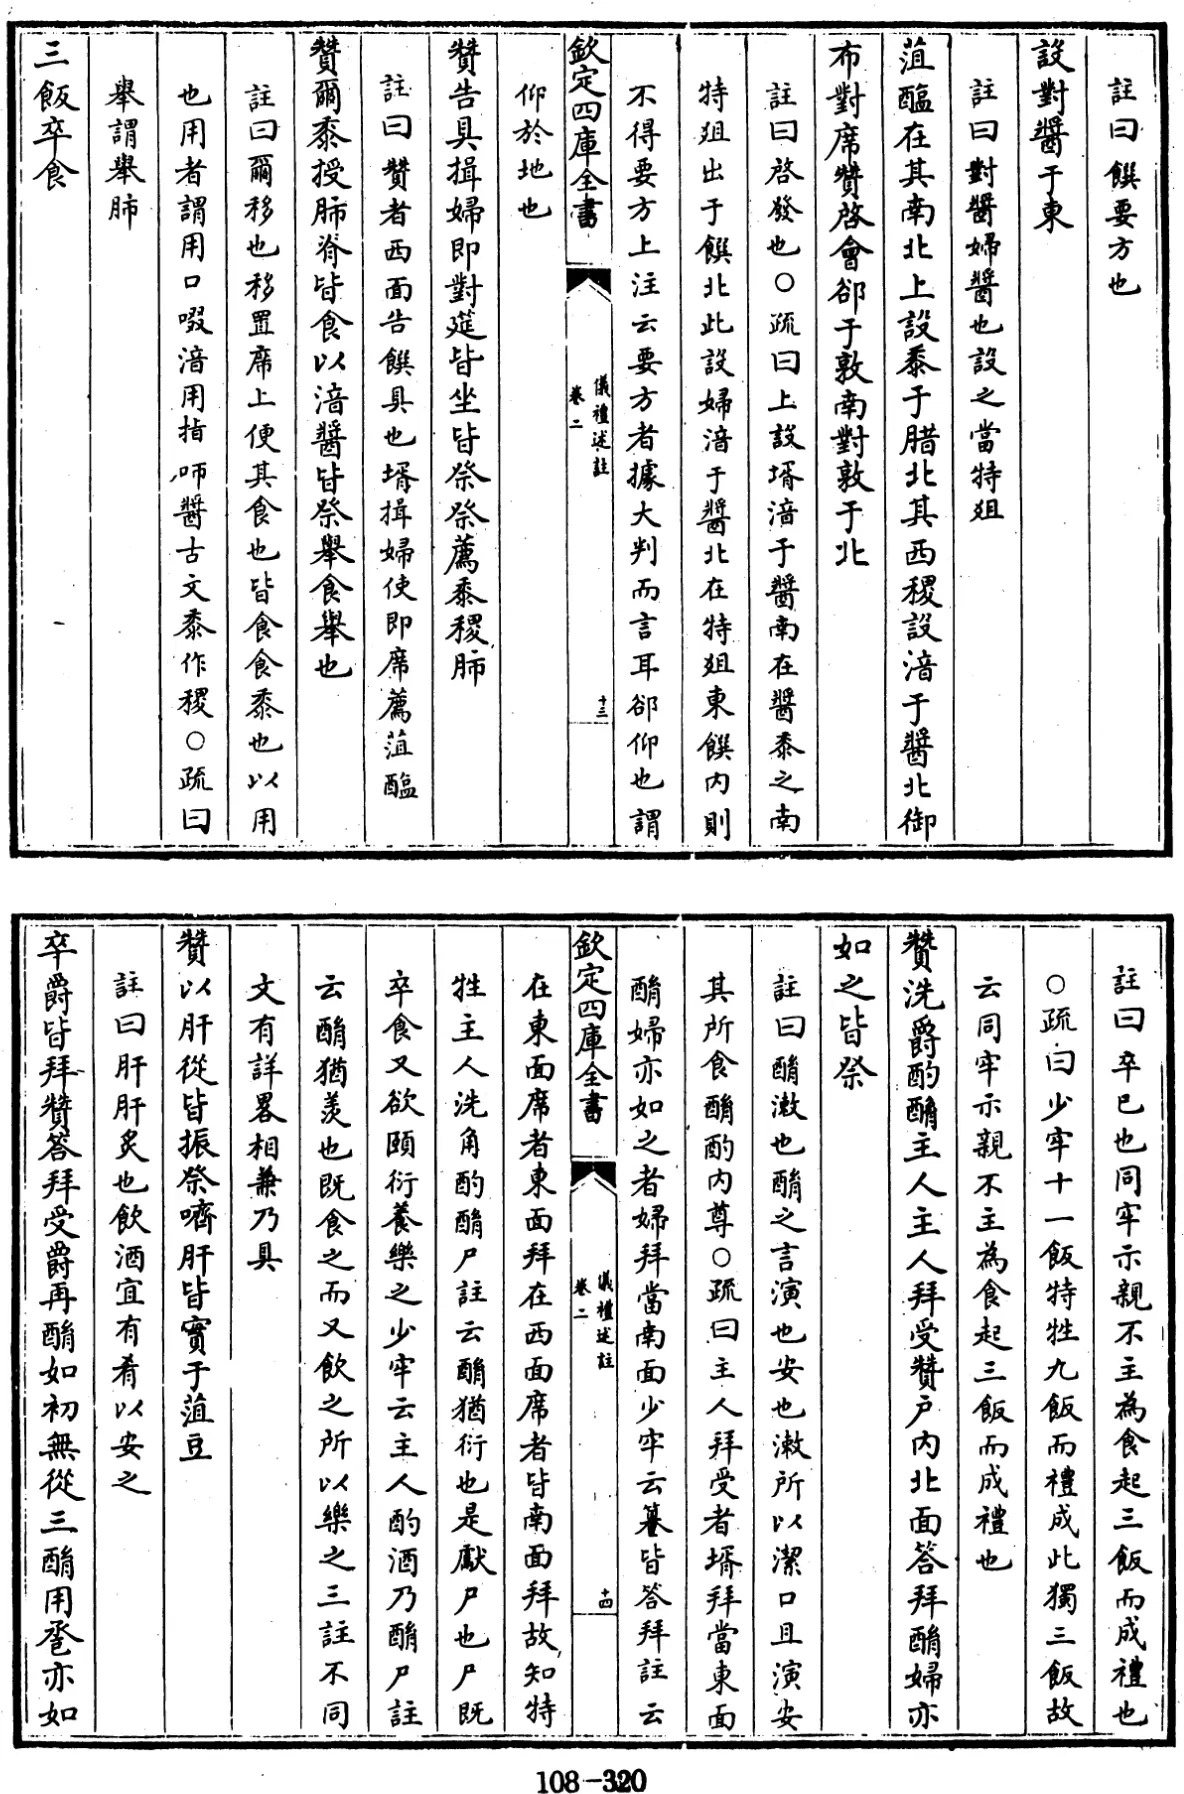 註曰饌要方也
設對醬于東
註曰對醬婦醬也設之當特俎
菹醢在其南北上設黍于腊北其西稷設湆于醬北御
布對席贊啓會郤于敦南對敦于北
註曰啓發也○疏曰上設壻湆于醬南在醬黍之南
特俎出于饌北此設婦湆于醬北在特俎東饌内則
不得要方上注云要方者據大判而言耳郤仰也謂
欽定四庫全書
儀禮述註
卷二
十三
仰於地也
贊告具揖婦即對筵皆坐皆祭祭薦黍稷肺
註曰贊者西面告饌具也壻揖婦使即席薦菹醢
贊爾黍授肺脊皆食以湆醬皆祭舉食舉也
註曰爾移也移置席上便其食也皆食食黍也以用
也用者謂用口啜湆用指㕠醬古文黍作稷○疏曰
舉謂舉肺
三飯卒食
註曰卒已也同牢示親不主為食起三飯而成禮也
○疏曰少牢十一飯特牲九飯而禮成此獨三飯故
云同牢示親不主為食起三飯而成禮也
贊洗爵酌酳主人主人拜受贊户内北面答拜酳婦亦
如之皆祭
註曰酳漱也酳之言演也安也漱所以潔口且演安
其所食酳酌内尊○疏曰主人拜受者壻拜當東面
酳婦亦如之者婦拜當南面少牢云籑皆答拜註云
欽定四庫全書
儀禮述註
卷二
十四
在東面席者東面拜在西面席者皆南面拜故知特
牲主人洗角酌酳尸註云酳猶衍也是獻尸也尸既
卒食又欲頤衍養樂之少牢云主人酌酒乃酳尸註
云酳猶羨也既食之而又飲之所以樂之三註不同
文有詳畧相兼乃具
贊以肝從皆振祭嚌肝皆實于菹豆
註曰肝肝炙也飲酒宜有肴以安之
卒爵皆拜贊答拜受爵再酳如初無從三酳用卺亦如
108-320